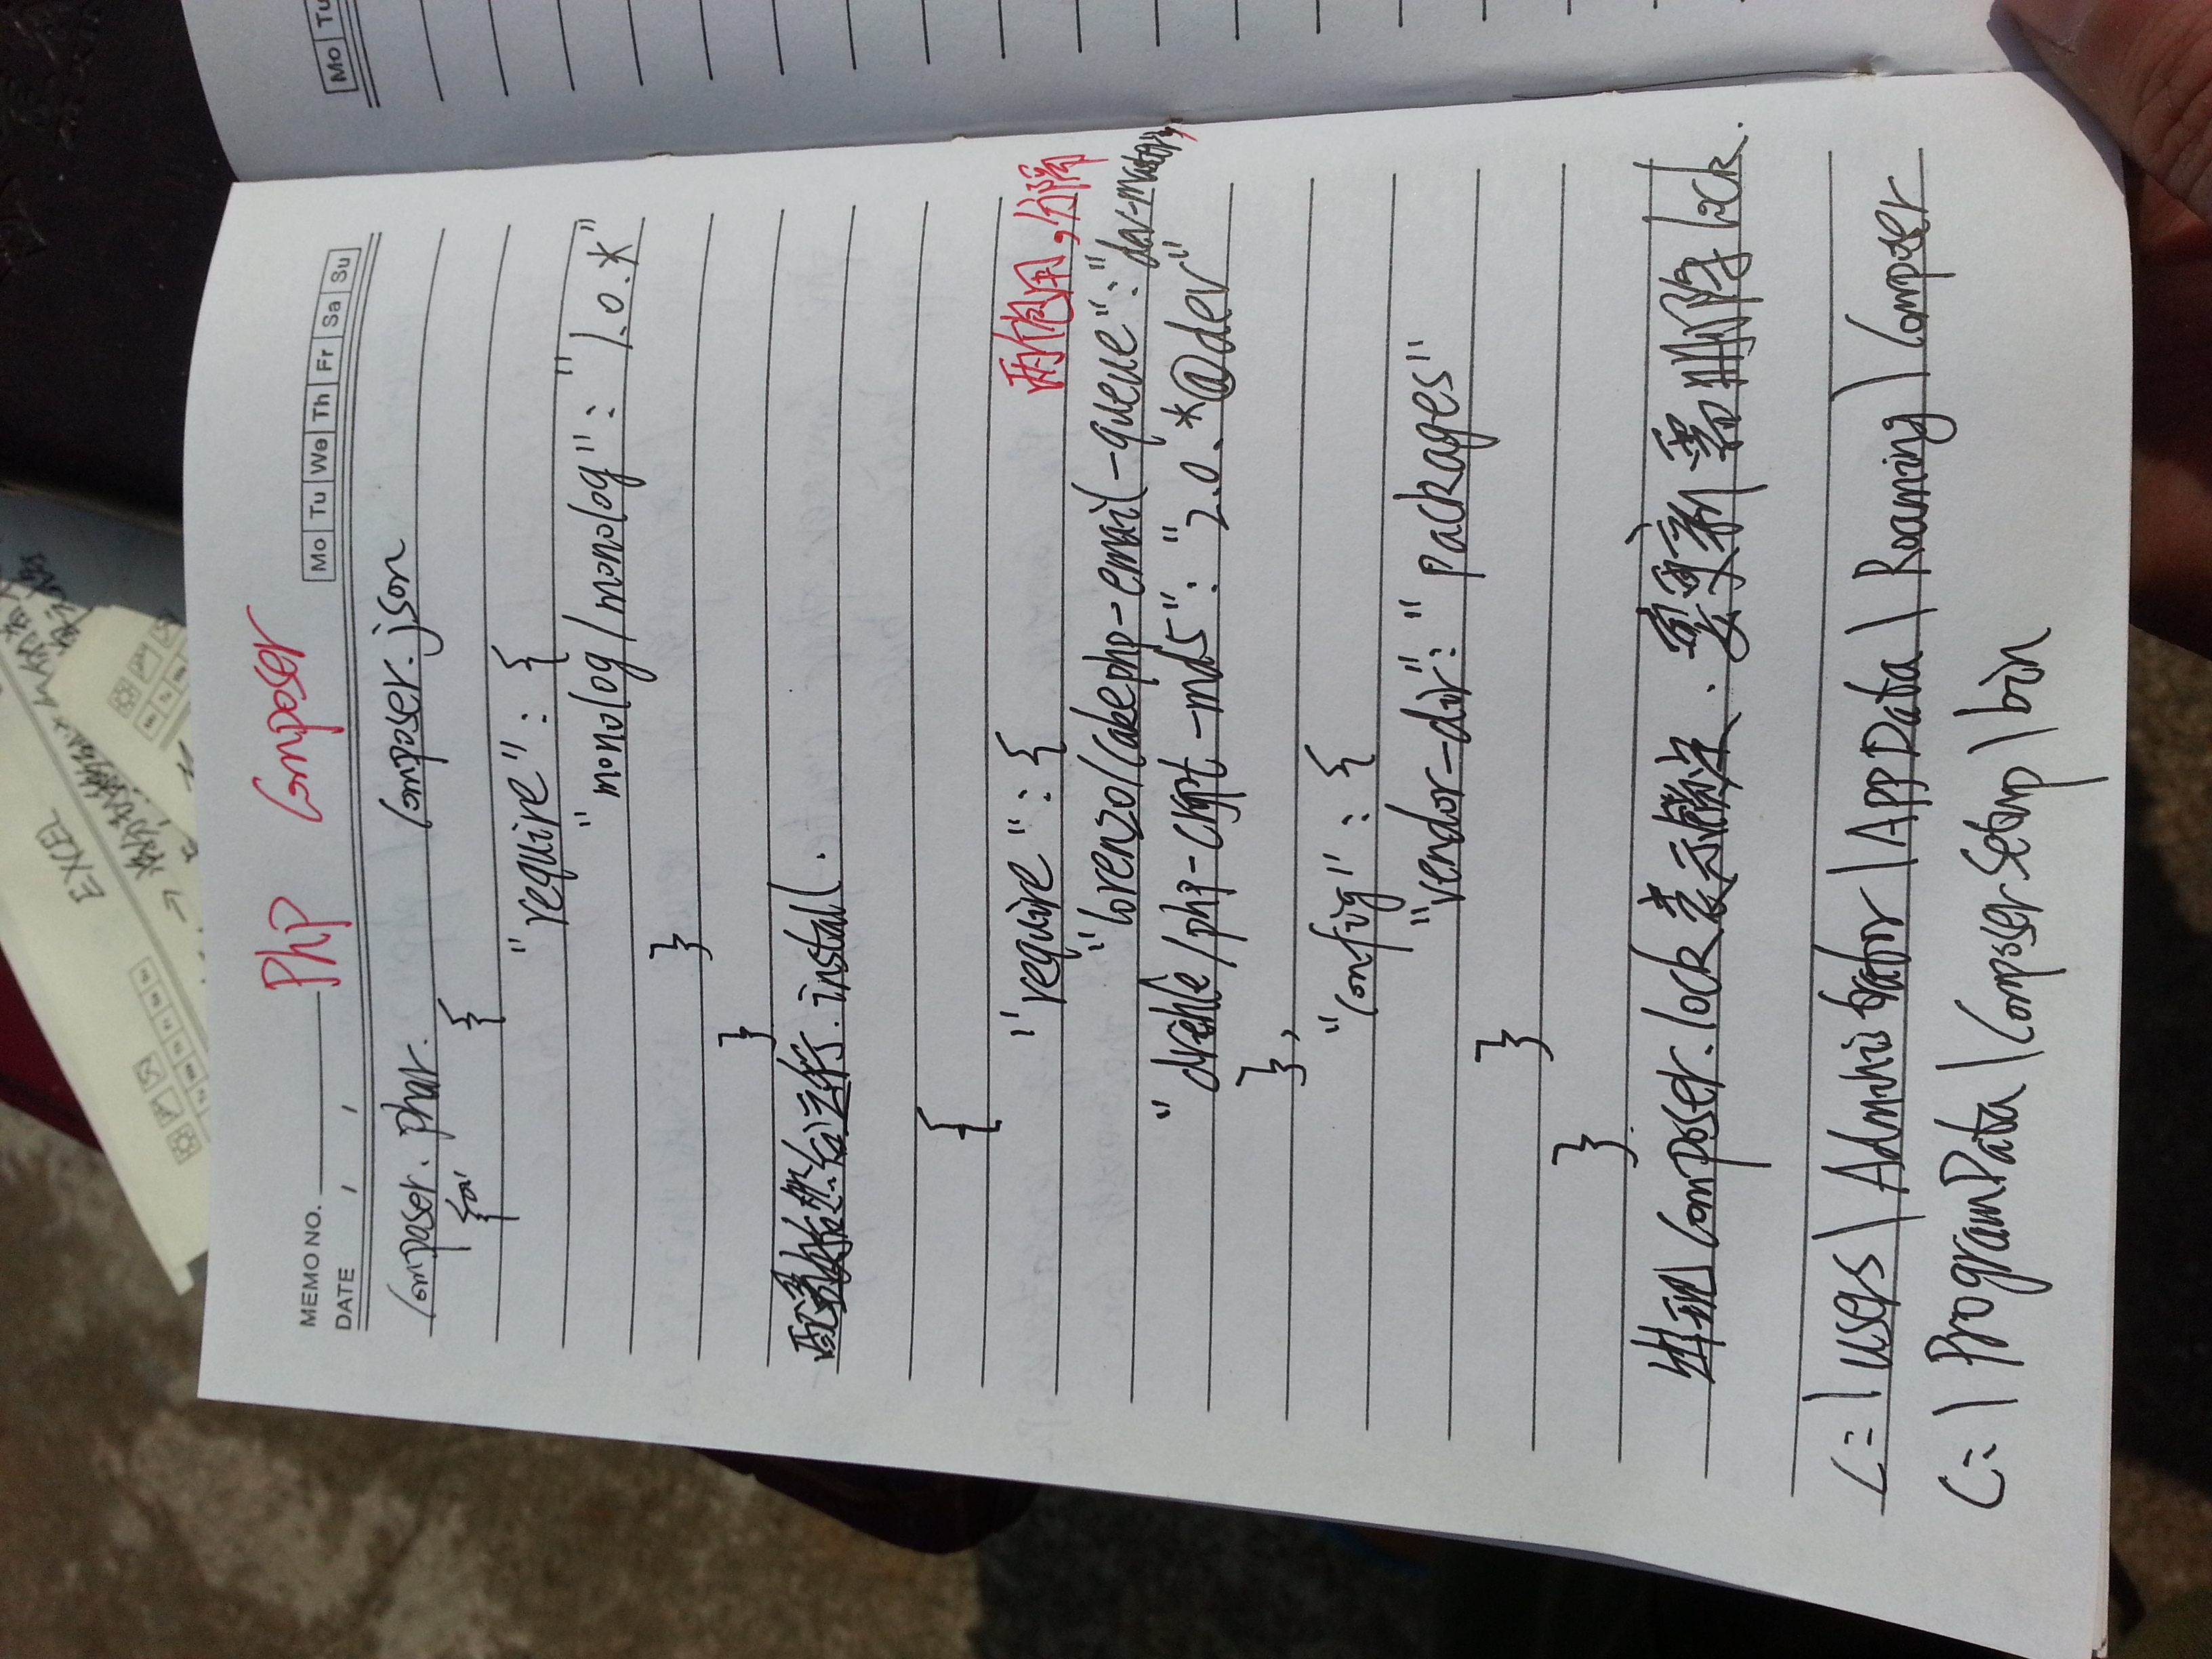 EXCEL
Php Composer
MEMO NO.
Mo Tu We Th Fr Sa Su
DATE / /
Mo Tu
Composer.phar. Composer.json
{
"require" : {
"monolog/monolog" : "1.0.*"
}
}
然后运行. install.
{
"require" : {
两个包用,分隔
"lorenzo/cakephp-email-queue":"dev-master",
"drehle/php-crypt-md5": "2.0.*@dev"
},
"config" : {
"vendor-dir": "packages"
}
}.
出现 Composer.lock 表示锁定. 要更新 需删除 lock.
C:\users\Administrator\AppData\Roaming\Composer
C:\ProgramData\ComposerSetup\bin